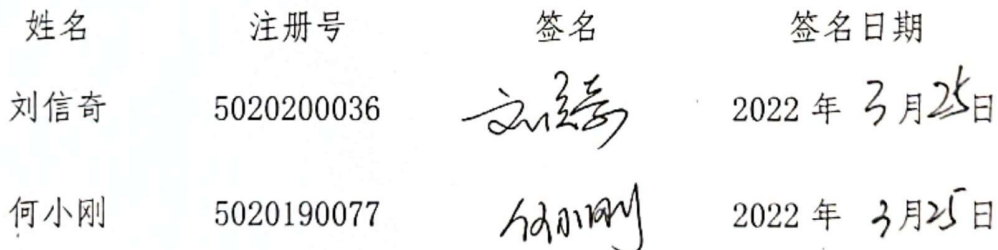 姓名 注册号 签名 签名日期
刘信奇 5020200036 刘信奇 2022 年 3 月 25 日
何小刚 5020190077 何小刚 2022 年 3 月 25 日